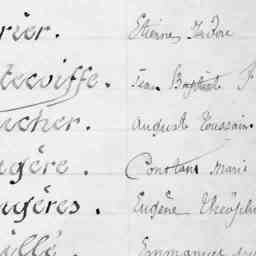 rier. Etienne Isidore
tecoiffe. Jean Baptiste F
ucher. August Toussain.
ugère. Constant Marie
ugères. Eugène Théoph
Emmanuel